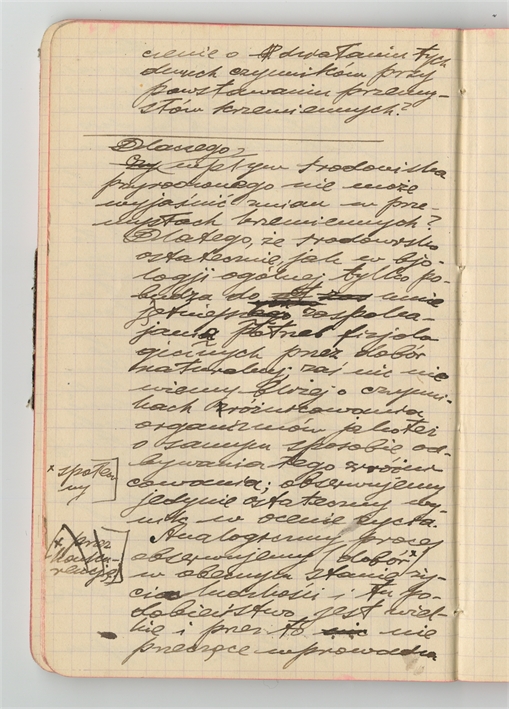 cienie o działaniu tych
dwuch czynników przy
powstawaniu przemy-
słów krzemiennych?
Dlaczego,
Czy wpływ środowiska
przyrodzonego nie może
wyjaśnić zmian w prze-
mysłach krzemiennych?
Dlatego, że środowisko
ostatecznie, jak w bjo-
logji ogólnej tylko po-
budza do
jętnego zaspoka-
jania potrzeb fizjolo
gicznych przez dobór
naturalny, zaś nic nie
wiemy bliżej o czynni-
kach zróżnicowania
organizmów jakoteż
o samym sposobie od-
bywania tego zróżni
cowania; obserwujemy
jedynie ostateczny wy-
nik w ocenie życia.
Analogiczny proces
obserwujemy (dobór x)
w obecnym stanie ży-
cia ludzkości i tu po-
dobieństwo jest wiel-
kie i przez to nie
przeczące wprowadza
x społecz
ny
x przez
konku-
rencję